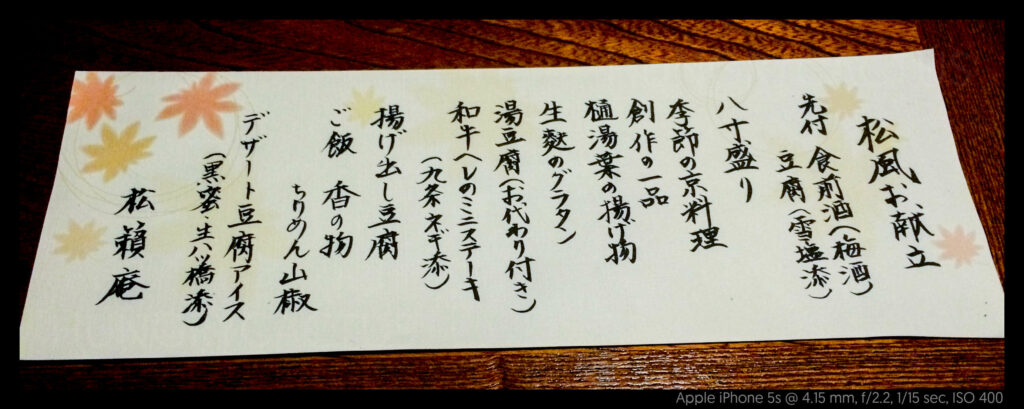 松風お献立
先付 食前酒(梅酒)
豆腐(雪塩添)
八寸盛り
季節の京料理
創作の一品
樋湯葉の揚げ物
生麩のグラタン
湯豆腐(お代わり付き)
和牛ヘレのミニステーキ
(九条ネギ添)
揚げ出し豆腐
ご飯 香の物
ちりめん山椒
デザート豆腐アイス
(黒蜜・生八ッ橋添)
松籟庵
Apple iPhone 5s @ 4.15 mm, f/2.2, 1/15 sec, ISO 400